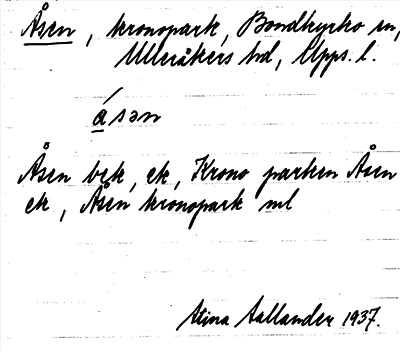 Åsen, kronopark, Bondkyrko sn,
Ulleråkers hd, Upps. l.
åsən
Åsen bek, ek, Krono parken Åsen
ek, Åsen kronopark ml
Stina Aallander 1937.